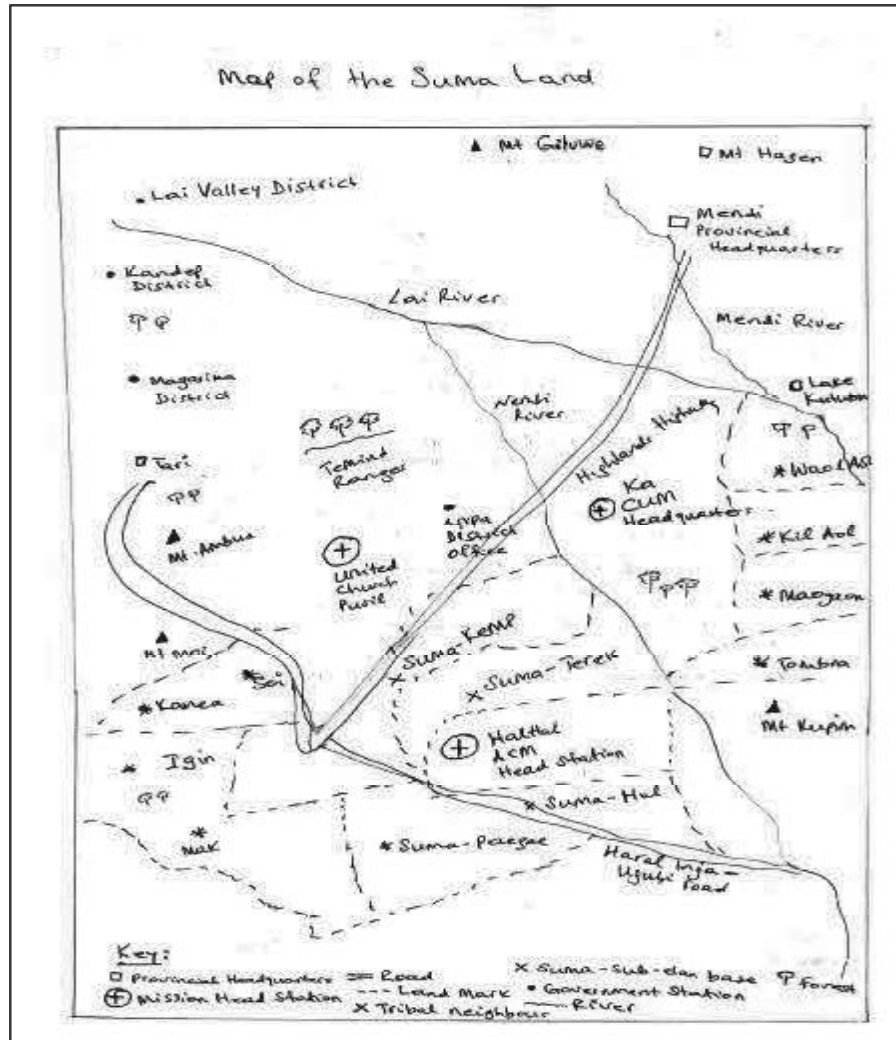 Map of the Suma Land
Mt Giluwe
Mt Hagen
Lai Valley District
Mendi
Provincial
Headquarters
Kandep
District
Lai River
Mendi River
Magarima
District
Nendi
River
Lake
Highlands Highway
Tari
Temind
Ranges
Ka
CUM
Headquarters
District
Office
Kil Aol
Mt. Ambua
United
Church
Puril
Maogaon
Suma-Kemp
Suma-Terek
Tombna
Sei
Kanea
Mt Kupin
HalHal
ACM
Head Station
Igin
Suma-Hul
Mak
Suma-Paegae
Haral Inja-
Ugubi road
Key:
Provincial Headquarters
Road
Suma-Sub-clan base
Forrest
Mission Head Station
Land Mark
Government Station
Tribal neighbour
River